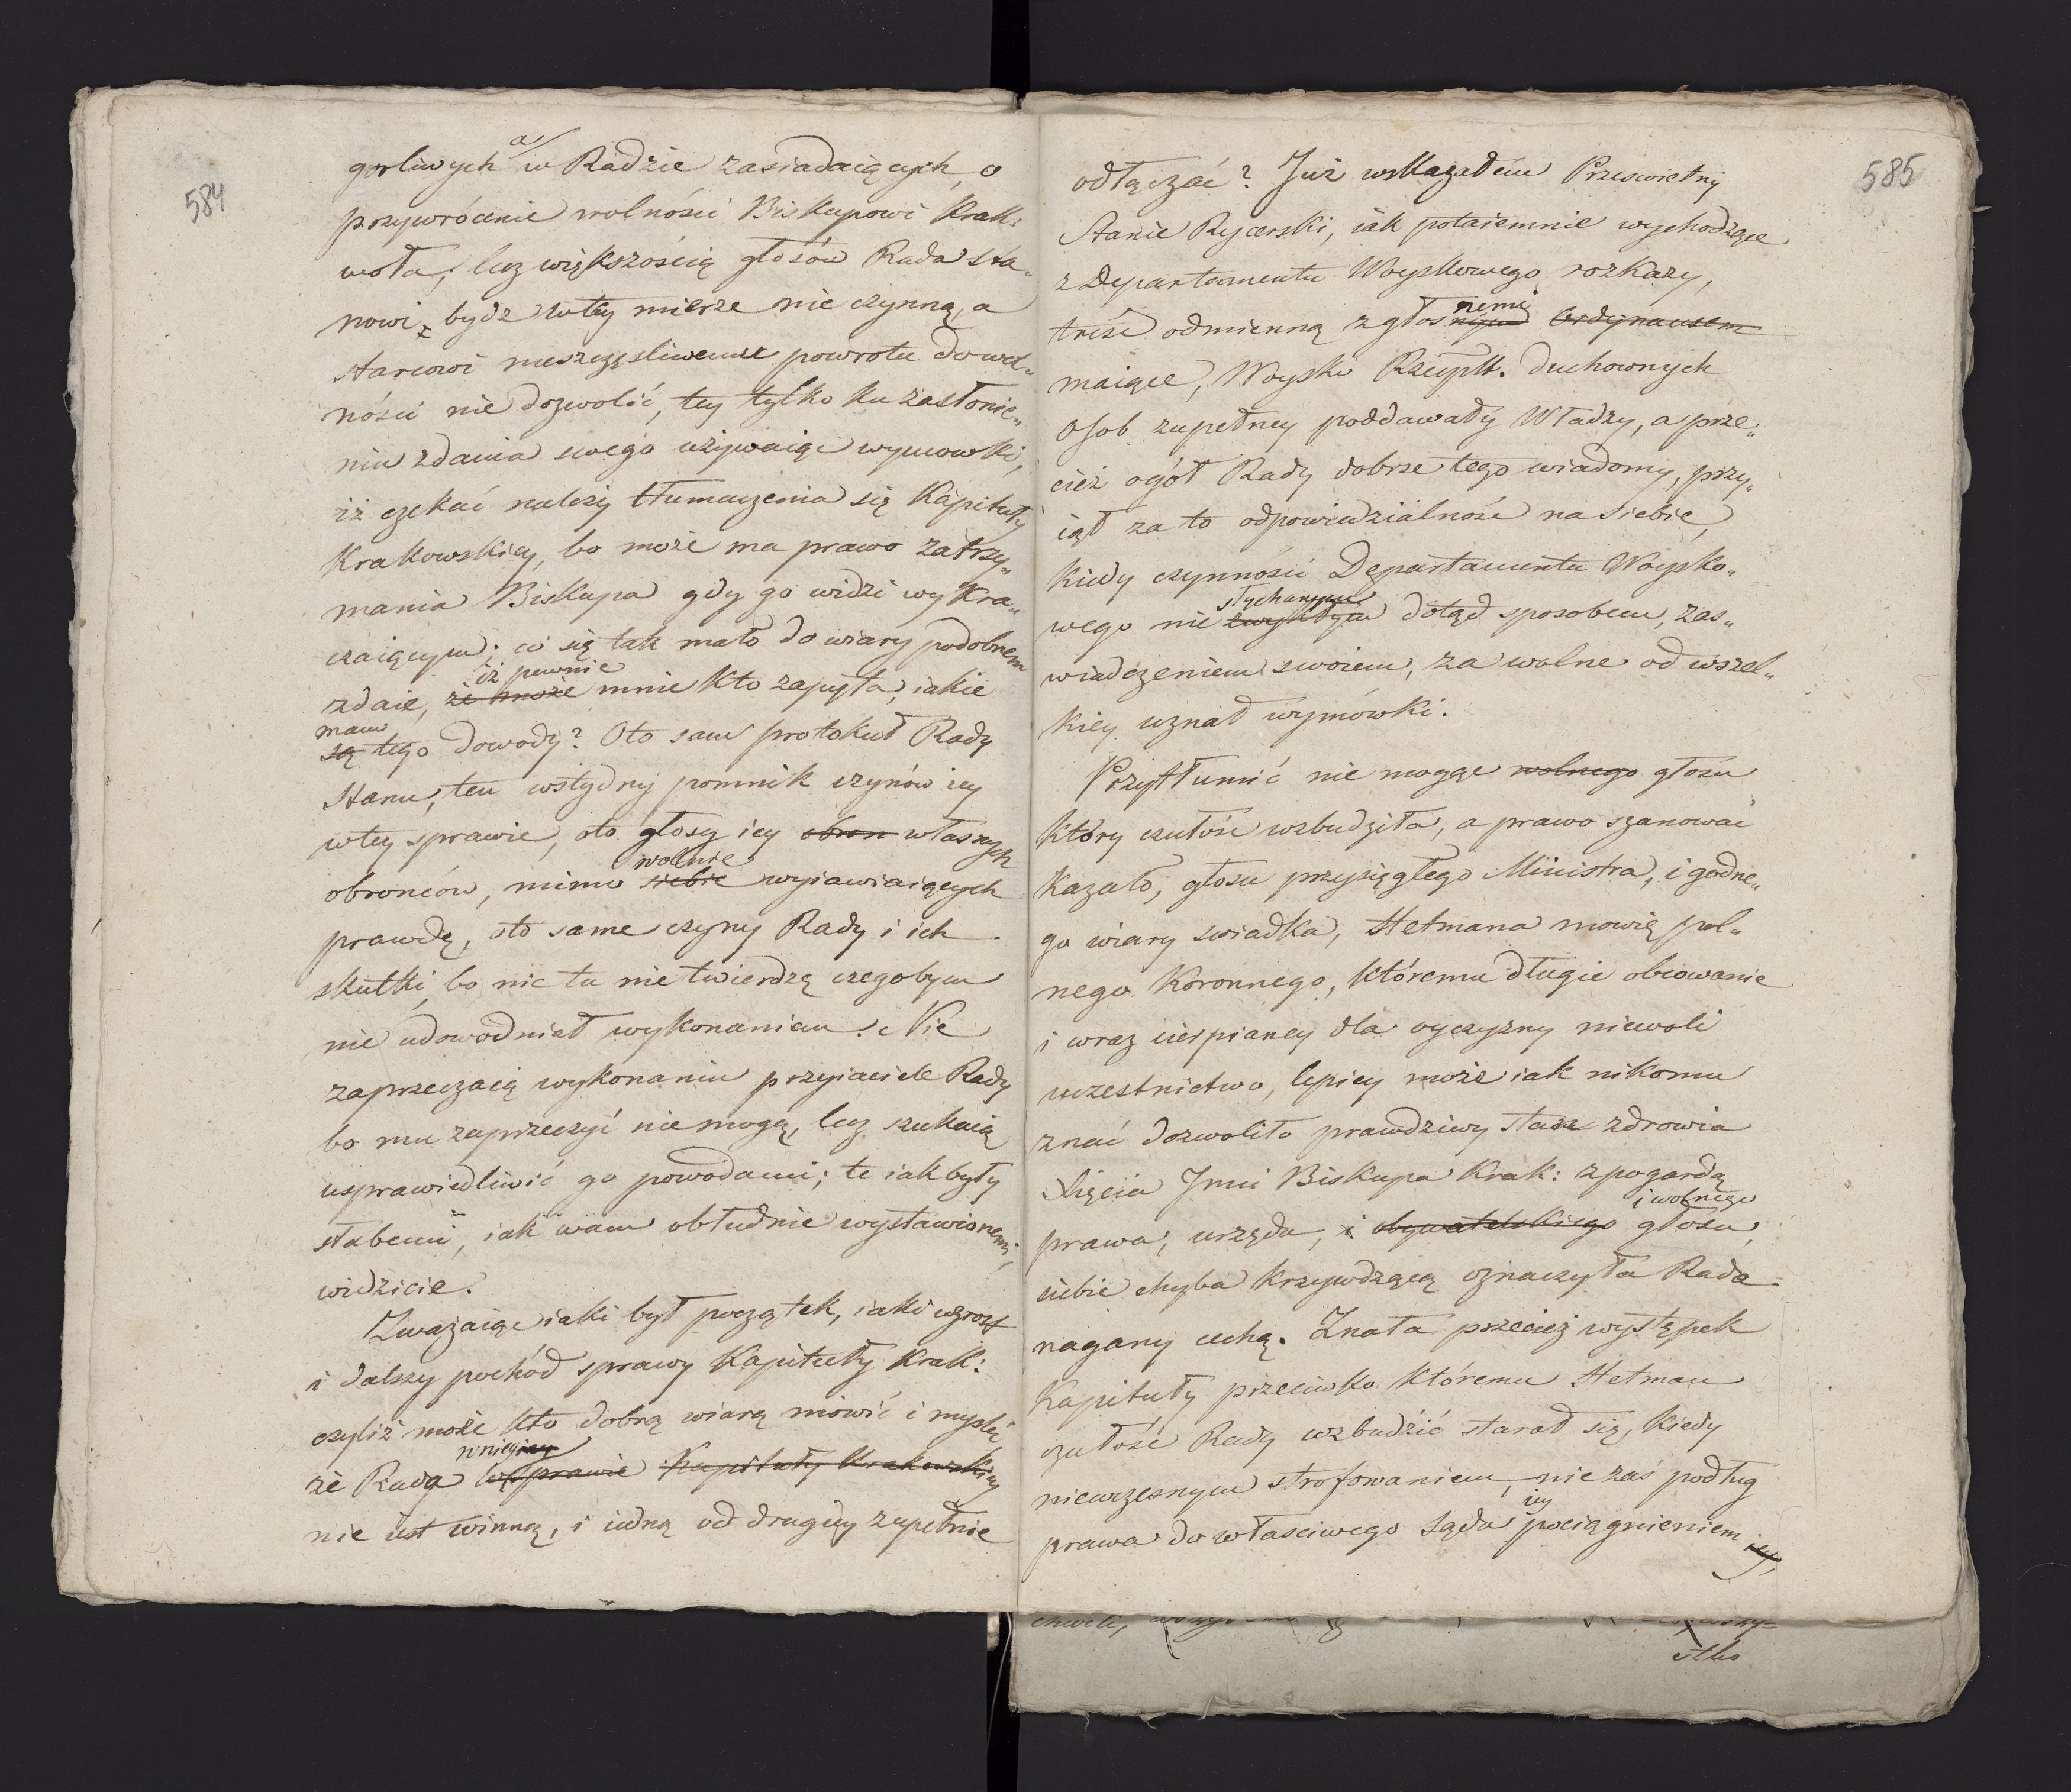 584
gorliwych a w Radzie zasiadaiących, o
przywrócenie wolności Biskupowi Krak:
woła, lecz większością głosów Rada sta„
nowi, bydz w tey mierze nie czynną, a
starcowi nieszczęsliwemu powrotu do wol„
ności nie dozwolić, tey tylko ku zasłonie„
niu zdania swego używaiąc wymowki,
iż czekać należy tłumaczenia się Kapituły
Krakowskiey, bo może ma prawo zatrzy„
mania Biskupa gdy go widzi wykra„
czaiącym; co się tak mało do wiary podobnem
iż pewnie
zdaie, że może mnie kto zapyta, iakie
mam
są tego dowody? Oto sam protokuł Rady
Stanu, ten wstydny pomnik czynów iey
w tey sprawie, oto głosy iey obron własnych
wolnie
obrońców, mimo siebie wyiawiaiących
prawdę, oto same czyny Rady i ich
skutki, bo nic tu nie twierdzę czegobym
nie udowodniał wykonaniem. Nie
zaprzeczaią wykonaniu przyiaciele Rady
bo mu zaprzeczyć nie mogą, lecz szukaią
usprawiedliwić go powodami; te iak były
słabemi, iak wam obłudnie wystawionemi,
widzicie.
Zważaiąc iaki był początek, iaki wzrost
i dalszy pochód sprawy Kapituły Krak:
czyliż może kto dobrą wiarą mówić i mysleć
w niey
że Rada w sprawie Kapituły Krakowskiey
nie iest winną, i iedną od drugiey zupełnie
585
odłączać? Już wskazałem Przeswietny
Stanie Rycerski, iak potaiemnie wychodzące
z Departamentu Woyskowego rozkazy,
nemi
treść odmienną z głosnym Ordynansem
maiące, Woysko Rzeuplt. duchownych
Osob zupełney poddawały Władzy, a prze„
cież ogół Rady dobrze tego wiadomy, przy„
iął za to odpowiedzialność na siebie,
kiedy czynności Departamentu Woysko„
słychanym
wego nie zwykłym dotąd sposobem, zas„
wiadczeniem swoiem, za wolne od wszel„
kiey uznał wymówki.
Przytłumić nie mogąc wolnego głosu
który czułość wzbudziła, a prawo szanować
kazało, głosu przysięgłego Ministra, i godne„
go wiary swiadka, Hetmana mowię pol„
nego Koronnego, któremu długie obcowanie
i wraz cierpianey dla oyczyzny niewoli
uczestnictwo, lepiey może iak nikomu
znać dozwoliło prawdziwy stan zdrowia
Xięcia Jmci Biskupa Krak: z pogardą
i wolnego
prawa, urzędu, i obywatelskiego głosu,
siebie chyba krzywdzącą oznaczyła Rada
nagany cechą. Znała przecież występek
Kapituły przeciwko któremu Hetman
czułość Rady wzbudzić starał się, kiedy
niewczesnym strofowaniem, nie zaś podług
iey
prawa do własciwego Sądu pociągnieniem iey,
stko